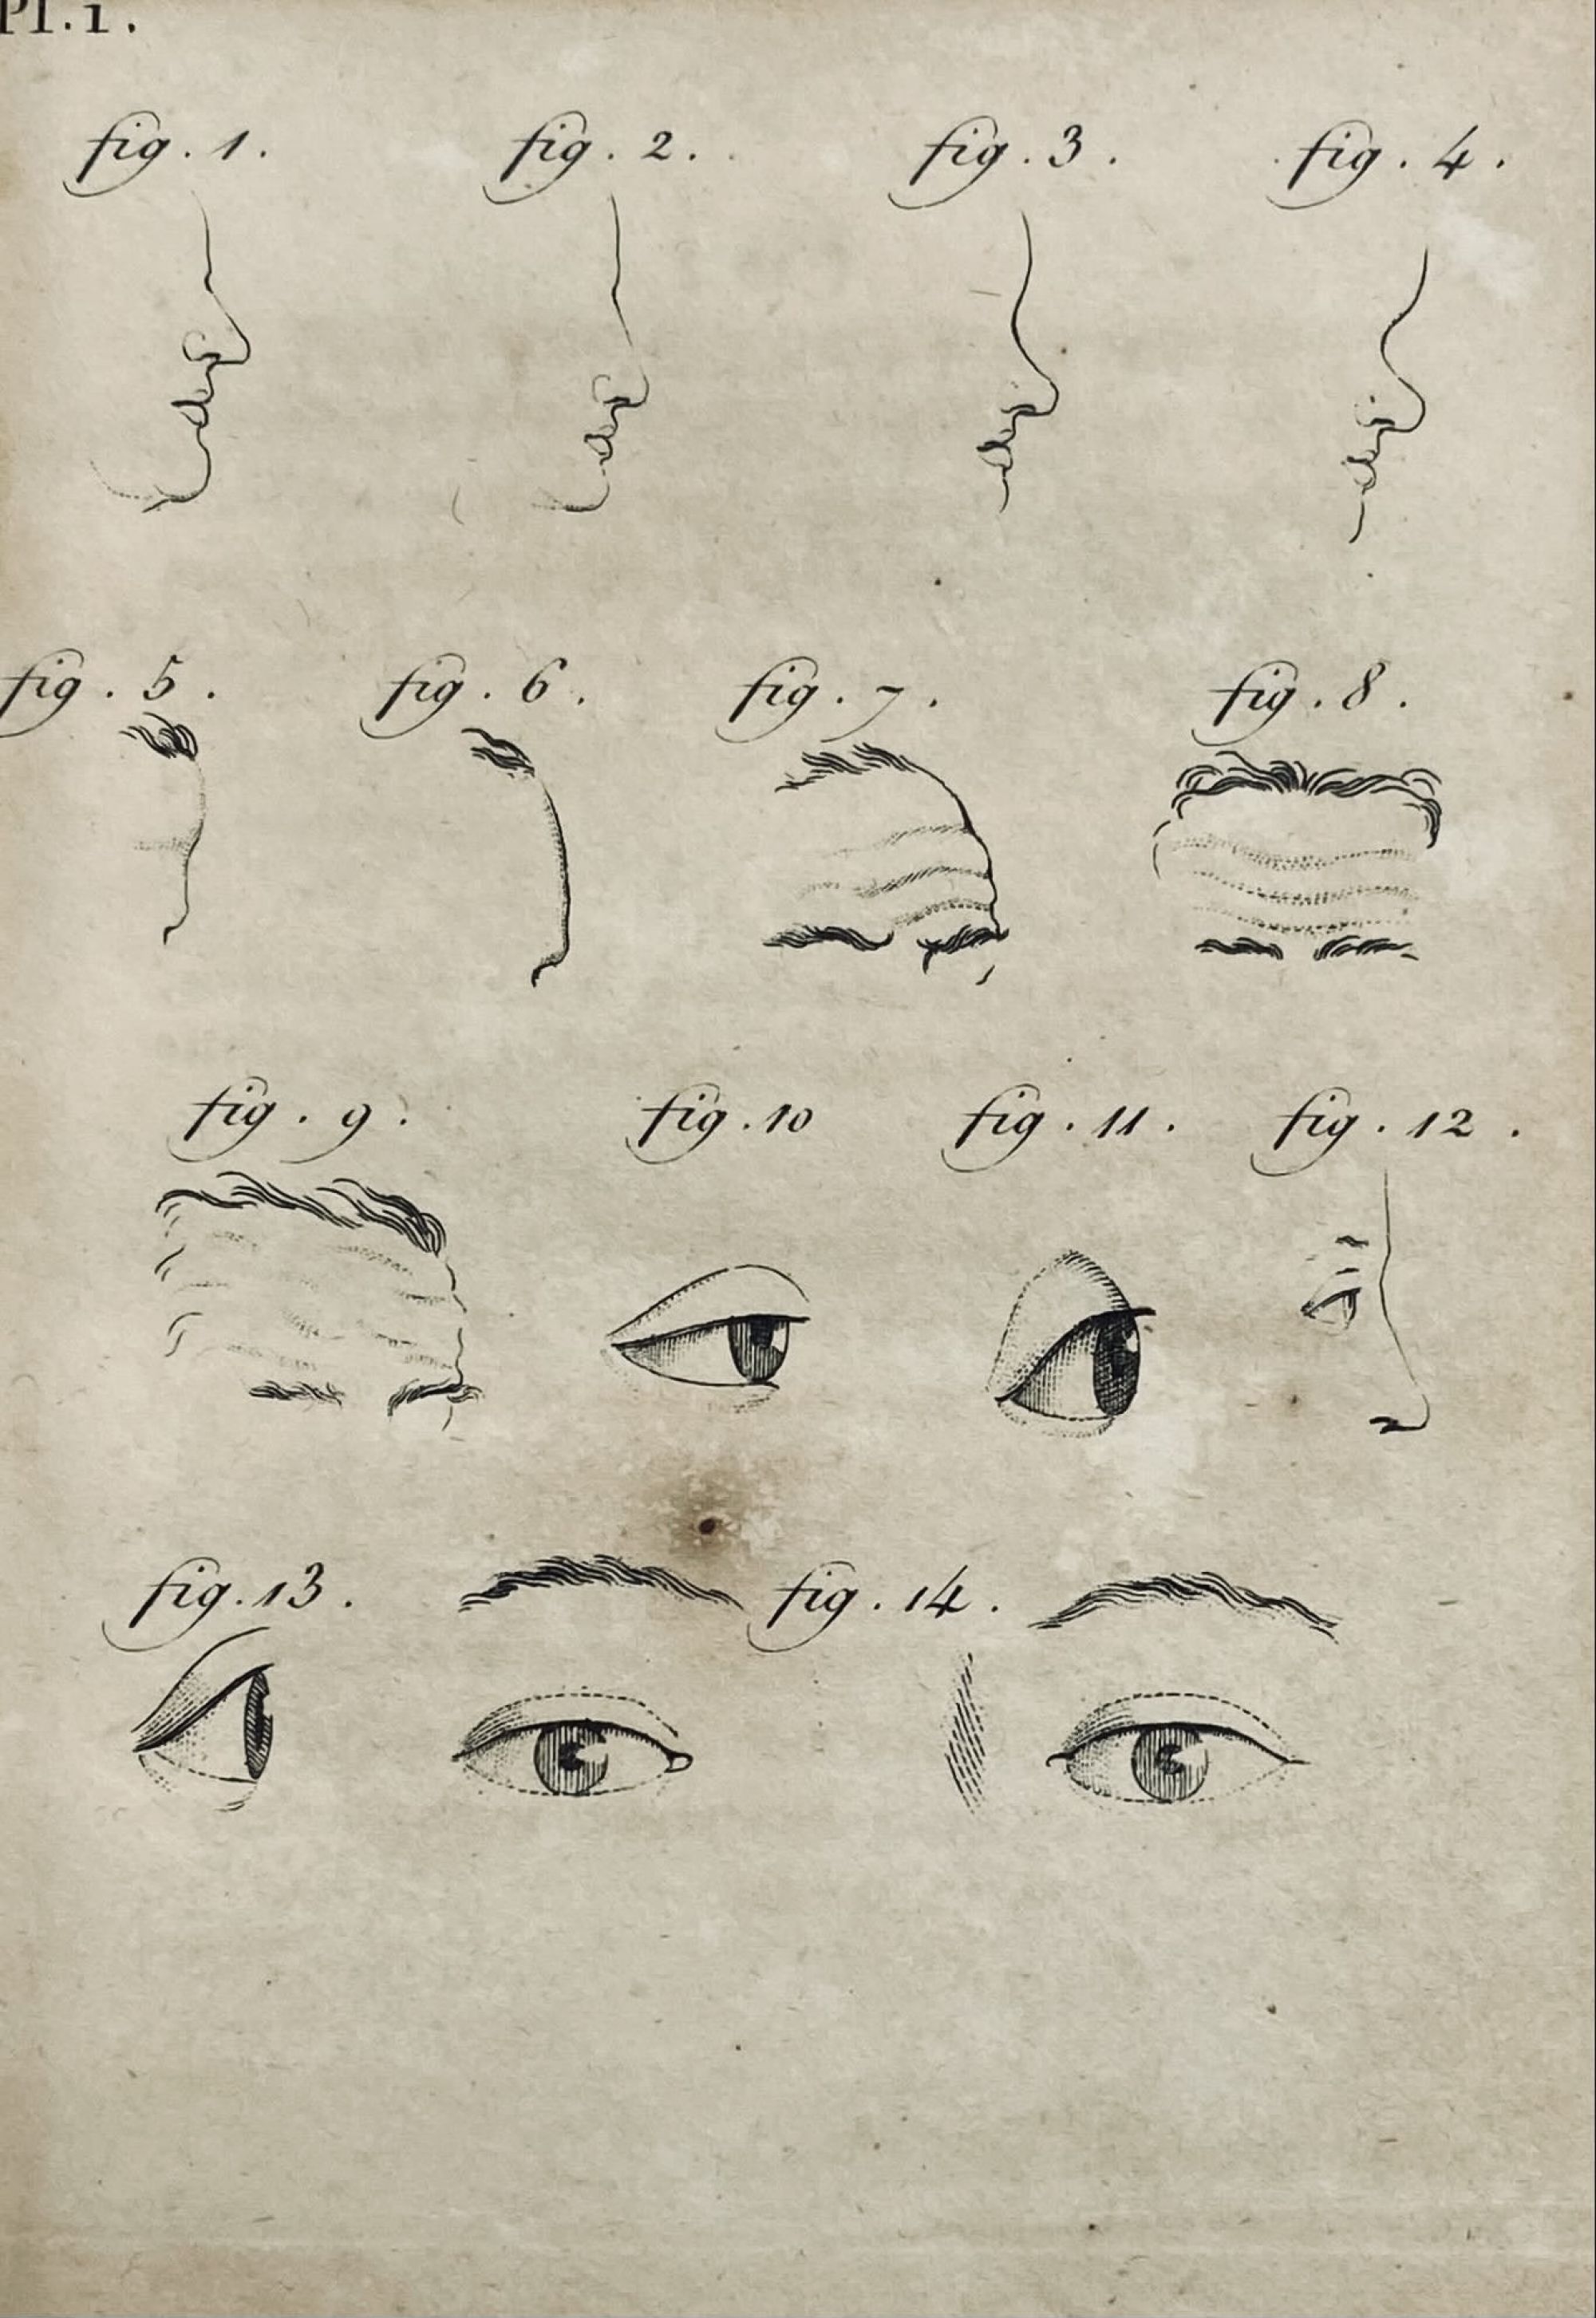 Pl.1.
fig. 1. fig. 2. fig. 3. fig. 4.
fig. 5. fig. 6. fig. 7. fig. 8.
fig. 9. fig. 10 fig. 11. fig. 12.
fig. 13. fig. 14.